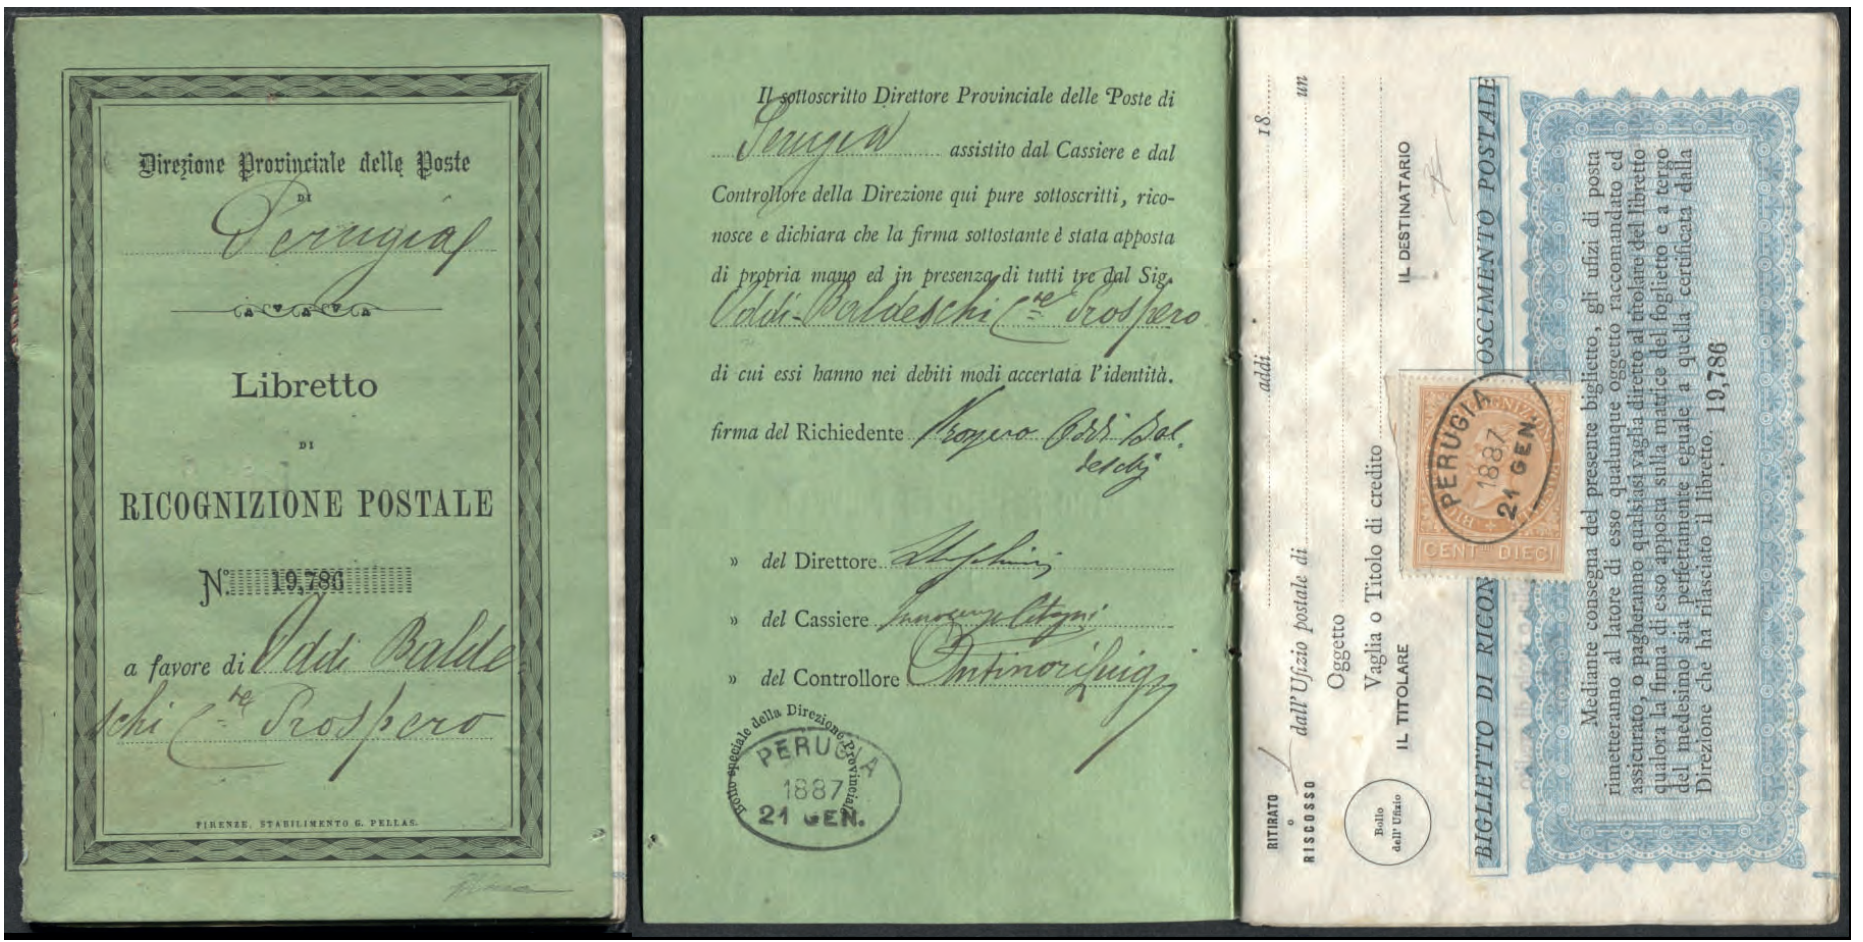 Direzione Provinciale delle Poste
DI
Perugia
Libretto
DI
RICOGNIZIONE POSTALE
N.º 19,786
a favore di Oddi Balde
schi C.te Prospero
FIRENZE, STABILIMENTO G. PELLAS.
Il sottoscritto Direttore Provinciale delle Poste di
Perugia assistito dal Cassiere e dal
Controllore della Direzione qui pure sottoscritti, rico-
nosce e dichiara che la firma sottostante è stata apposta
di propria mano ed in presenza di tutti tre dal Sig.
Oddi-Baldeschi C.te Prospero
di cui essi hanno nei debiti modi accertata l'identità.
firma del Richiedente Prospero Oddi Bal
deschi
» del Direttore
» del Cassiere
» del Controllore Antinori Luigi
Bollo speciale della Direzione Provinciale
PERUGIA
1887
21 GEN.
RITIRATO
o
RISCOSSO
addì 18 un
dall'Ufizio postale di
Oggetto
Vaglia o Titolo di credito
IL TITOLARE
IL DESTINATARIO
Bollo
dell' Ufizio
BIGLIETTO DI RICON OSCIMENTO POSTALE
PERUGIA
1887
21 GEN.
CENT.MI DIECI
Mediante consegna del presente biglietto, gli ufizi di posta
rimetteranno al latore di esso qualunque oggetto raccomandato ed
assicurato, o pagheranno qualsiasi vaglia diretto al titolare del libretto
qualora la firma di esso apposta sulla matrice del foglietto e a tergo
del medesimo sia perfettamente eguale a quella certificata dalla
Direzione che ha rilasciato il libretto. 19,786